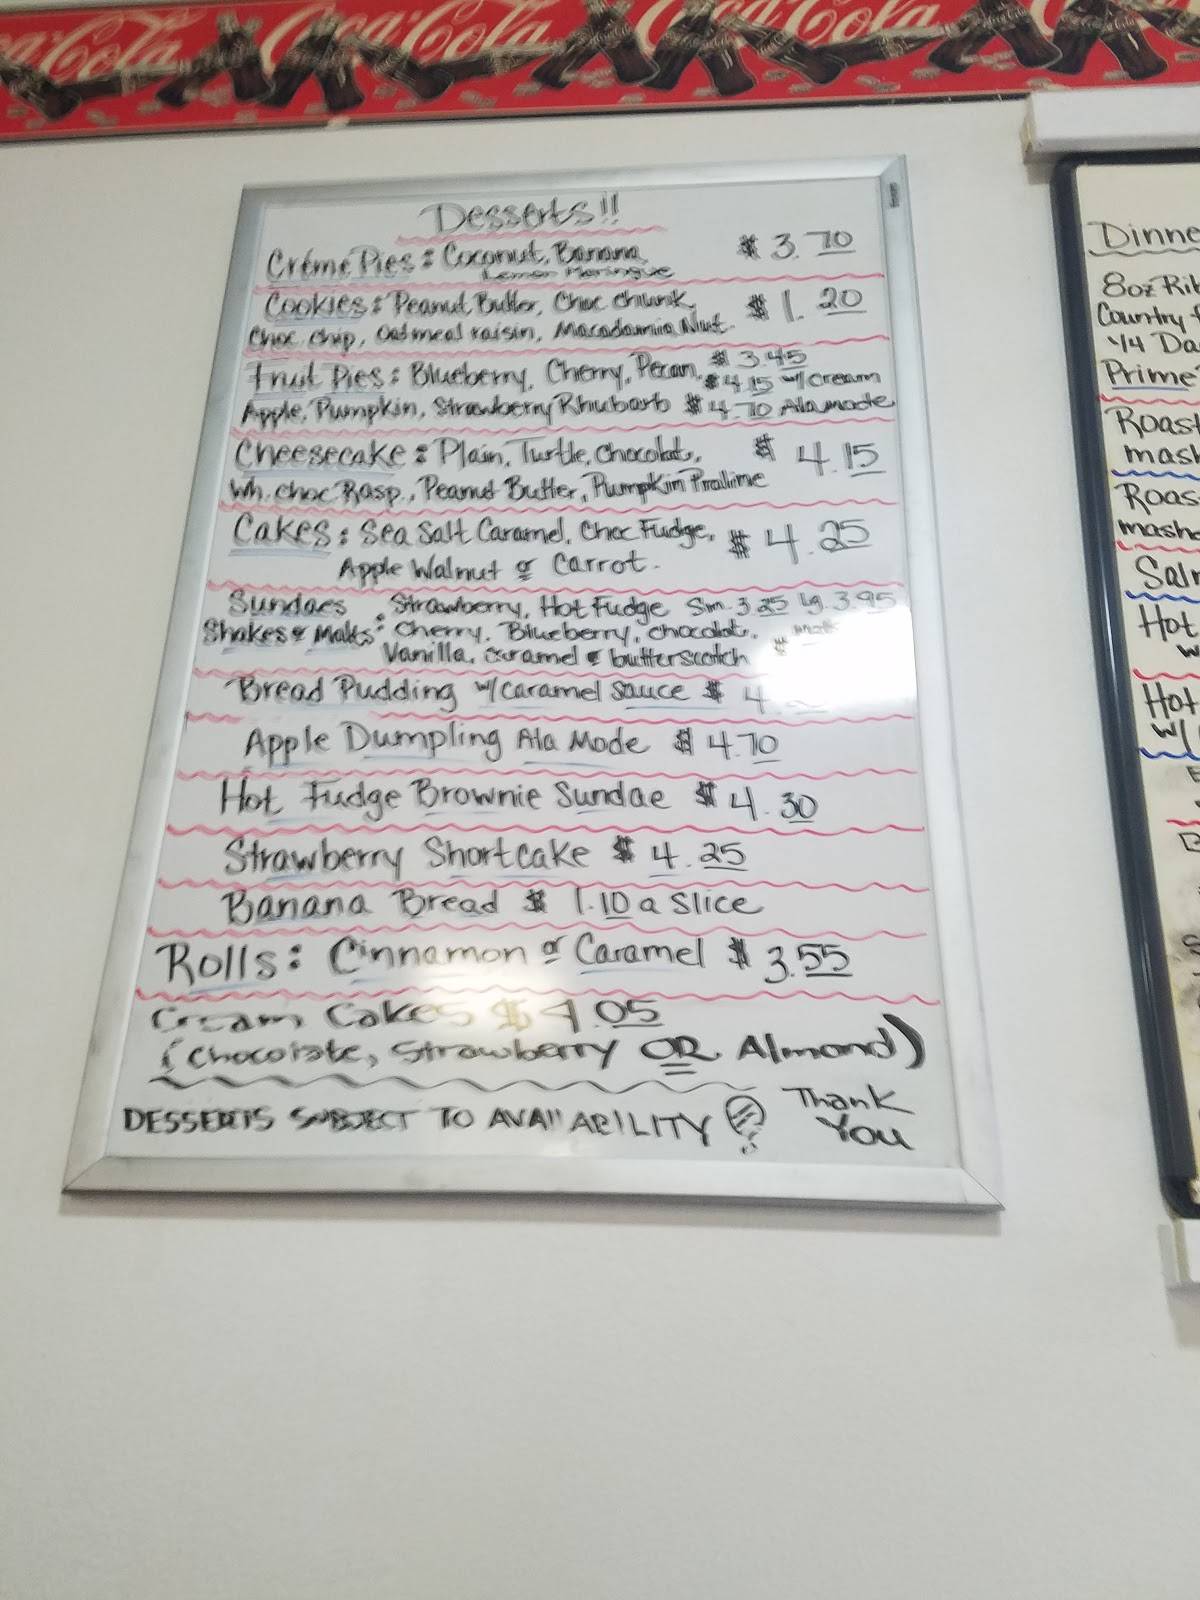 Coca-Cola Coca-Cola Coca-Cola
Desserts!!
Créme Pies: Coconut, Banana $3.70
Lemon Meringue
Cookies: Peanut Butter, Choc chunk, $1.20
Choc chip, Oatmeal raisin, Macadamia Nut
Fruit Pies: Blueberry, Cherry, Pecan, $3.45
$4.15 w/cream
Apple, Pumpkin, Strawberry Rhubarb $4.70 Alamode
Cheesecake: Plain, Turtle, Chocolat, $4.15
Wh. choc Rasp., Peanut Butter, Pumpkin Praline
Cakes: Sea Salt Caramel, Choc Fudge, $4.25
Apple Walnut or Carrot.
Sundaes : Strawberry, Hot Fudge Sm. 3.25 Lg. 3.95
Shakes & Malts: Cherry, Blueberry, chocolat, $
Vanilla, caramel & butterscotch
Bread Pudding w/caramel sauce $4.
Apple Dumpling Ala Mode $4.70
Hot Fudge Brownie Sundae $4.30
Strawberry Shortcake $4.25
Banana Bread $1.10 a slice
Rolls: Cinnamon or Caramel $3.55
Cream Cakes $4.05
(Chocolate, Strawberry OR Almond)
DESSERTS SUBJECT TO AVAILABILITY! Thank
You
Dinne
8oz Rib
Country f
1/4 Da
Prime
Roast
mash
Roas
masho
Salm
Hot
w
Hot
w/